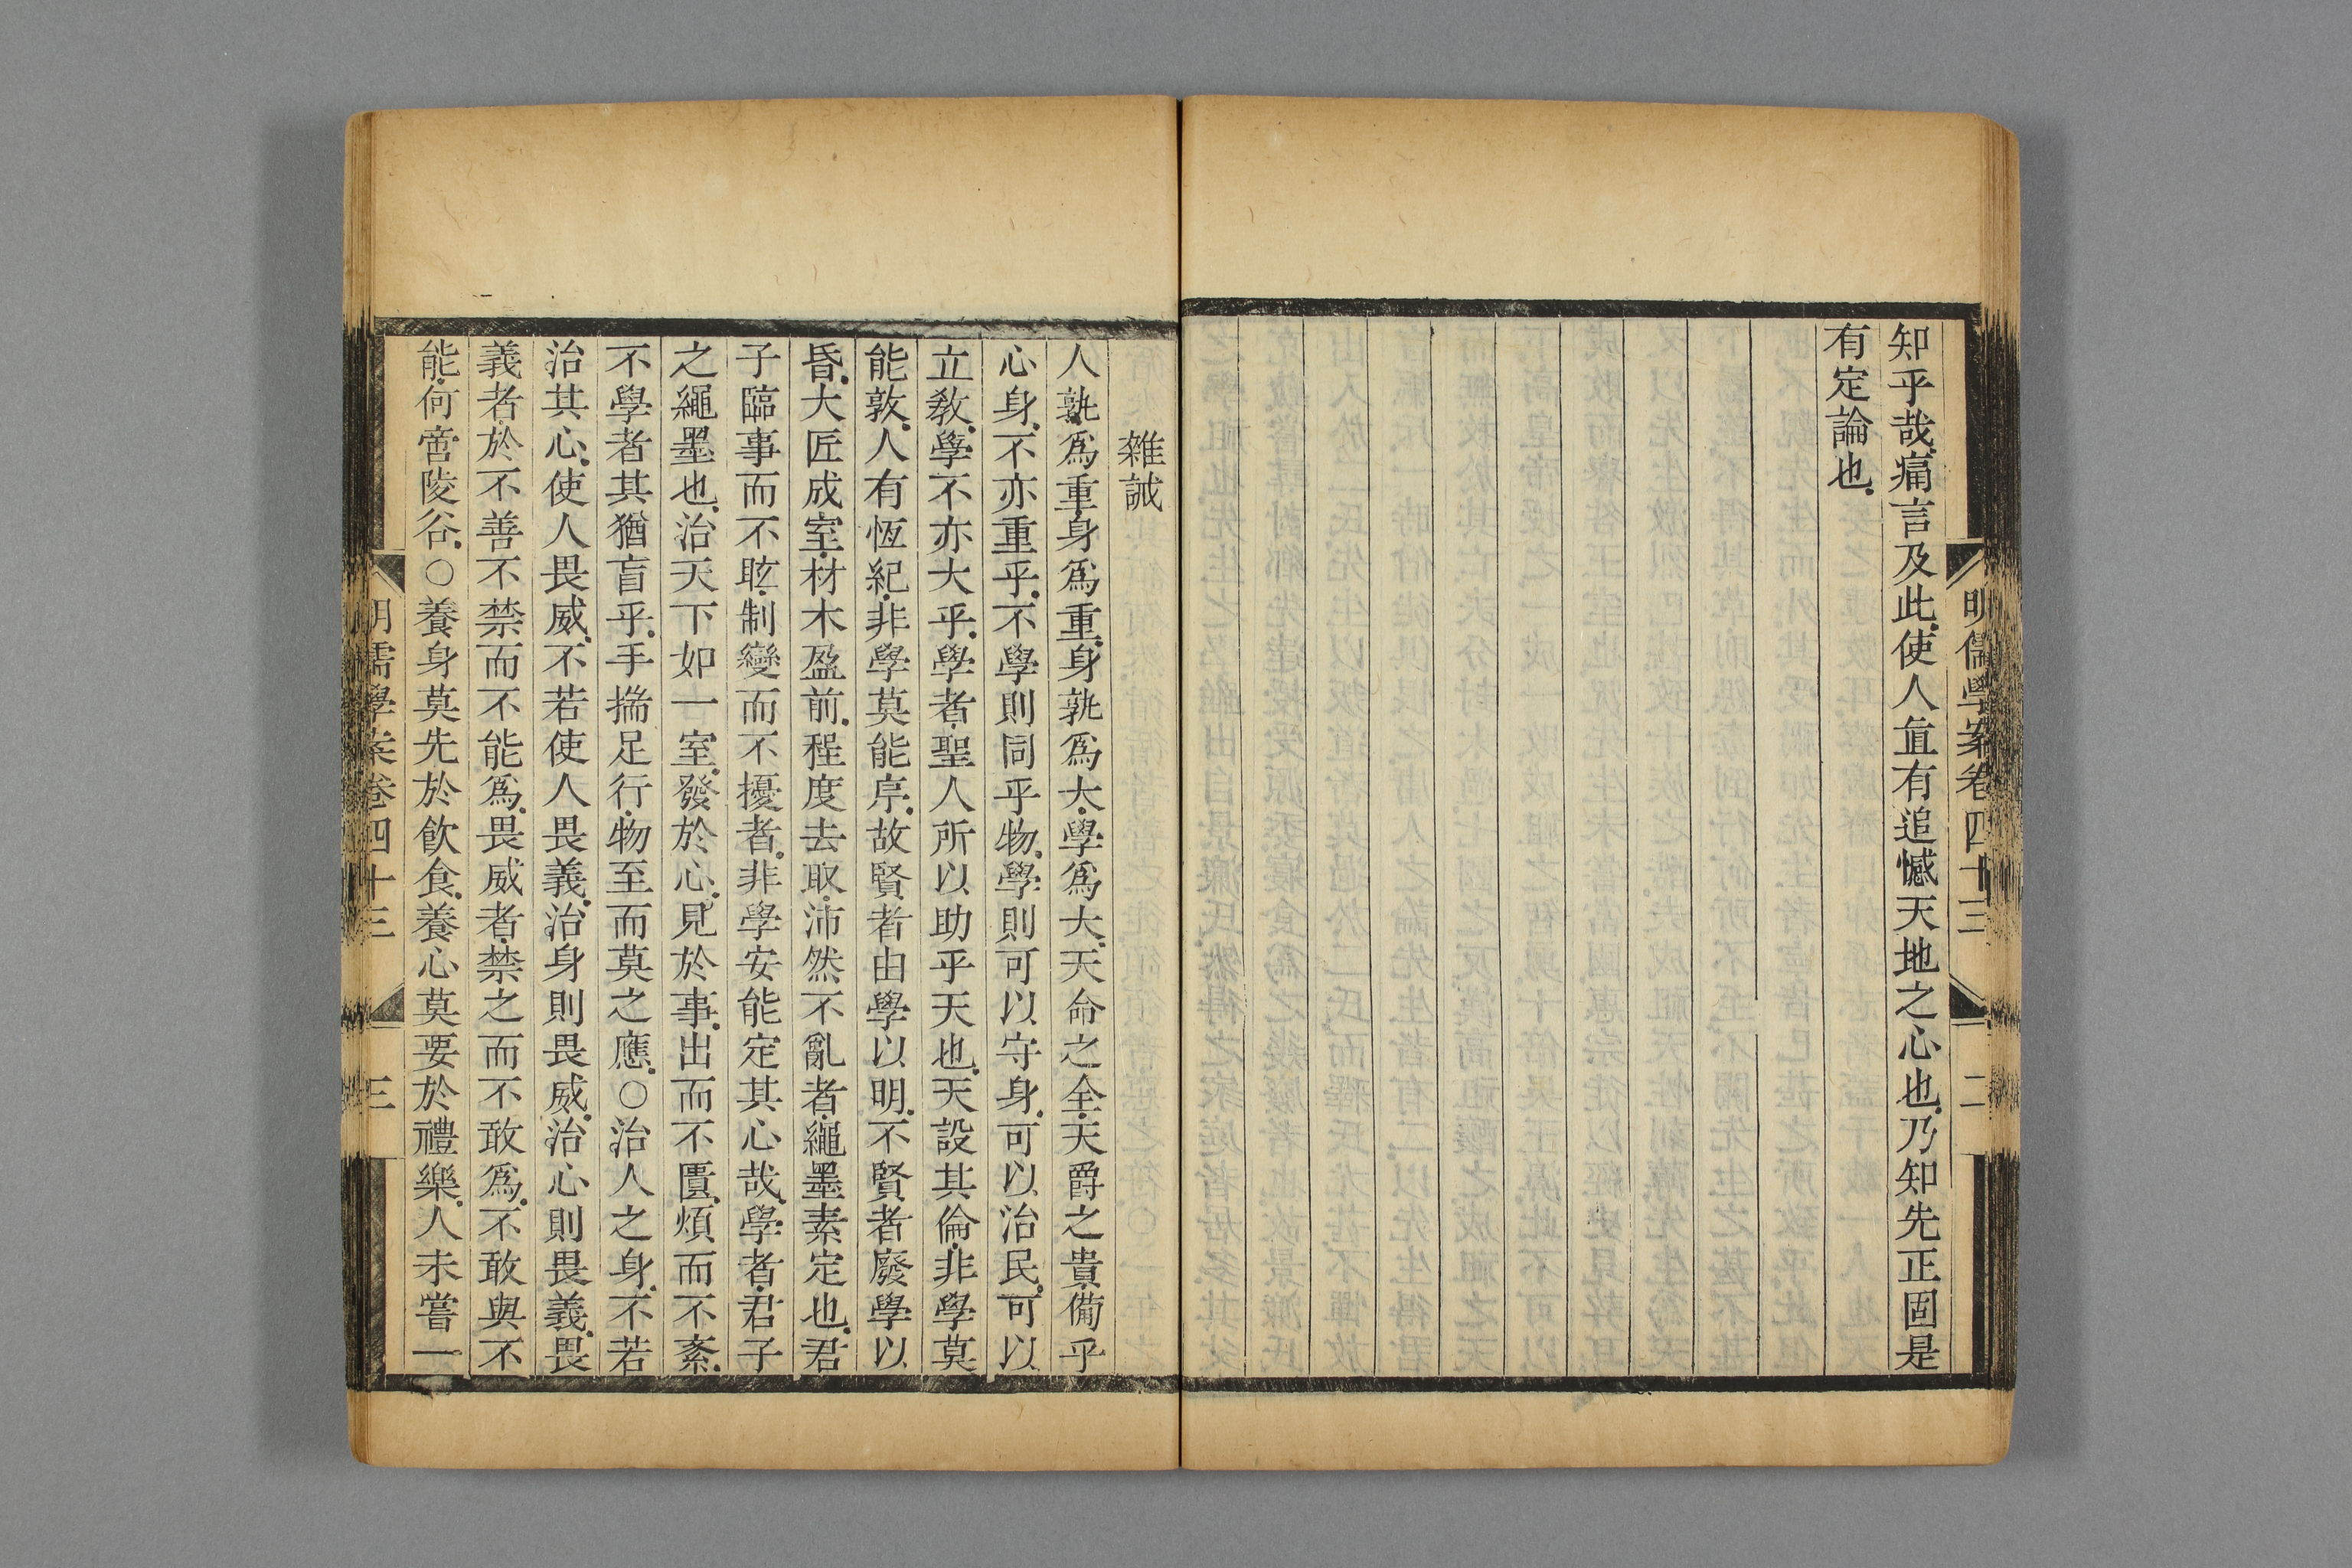 明儒學案卷四十三
二
知乎哉痛言及此使人直有追憾天地之心也乃知先正固是
有定論也
雜誡
人孰爲重身爲重身孰爲大學爲大天命之全天爵之貴備乎
心身不亦重乎不學則同乎物學則可以守身可以治民可以
立教學不亦大乎學者聖人所以助乎天也天設其倫非學莫
能敦人有恆紀非學莫能序故賢者由學以明不賢者廢學以
昏大匠成室材木盈前程度去取沛然不亂者繩墨素定也君
子臨事而不眩制變而不擾者非學安能定其心哉學者君子
之繩墨也治天下如一室發於心見於事出而不匱煩而不紊
不學者其猶盲乎手揣足行物至而莫之應○治人之身不若
治其心使人畏威不若使人畏義治身則畏威治心則畏義畏
義者於不善不禁而不能爲畏威者禁之而不敢爲不敢與不
能何啻陵谷○養身莫先於飲食養心莫要於禮樂人未嘗一
明儒學案卷四十三
三